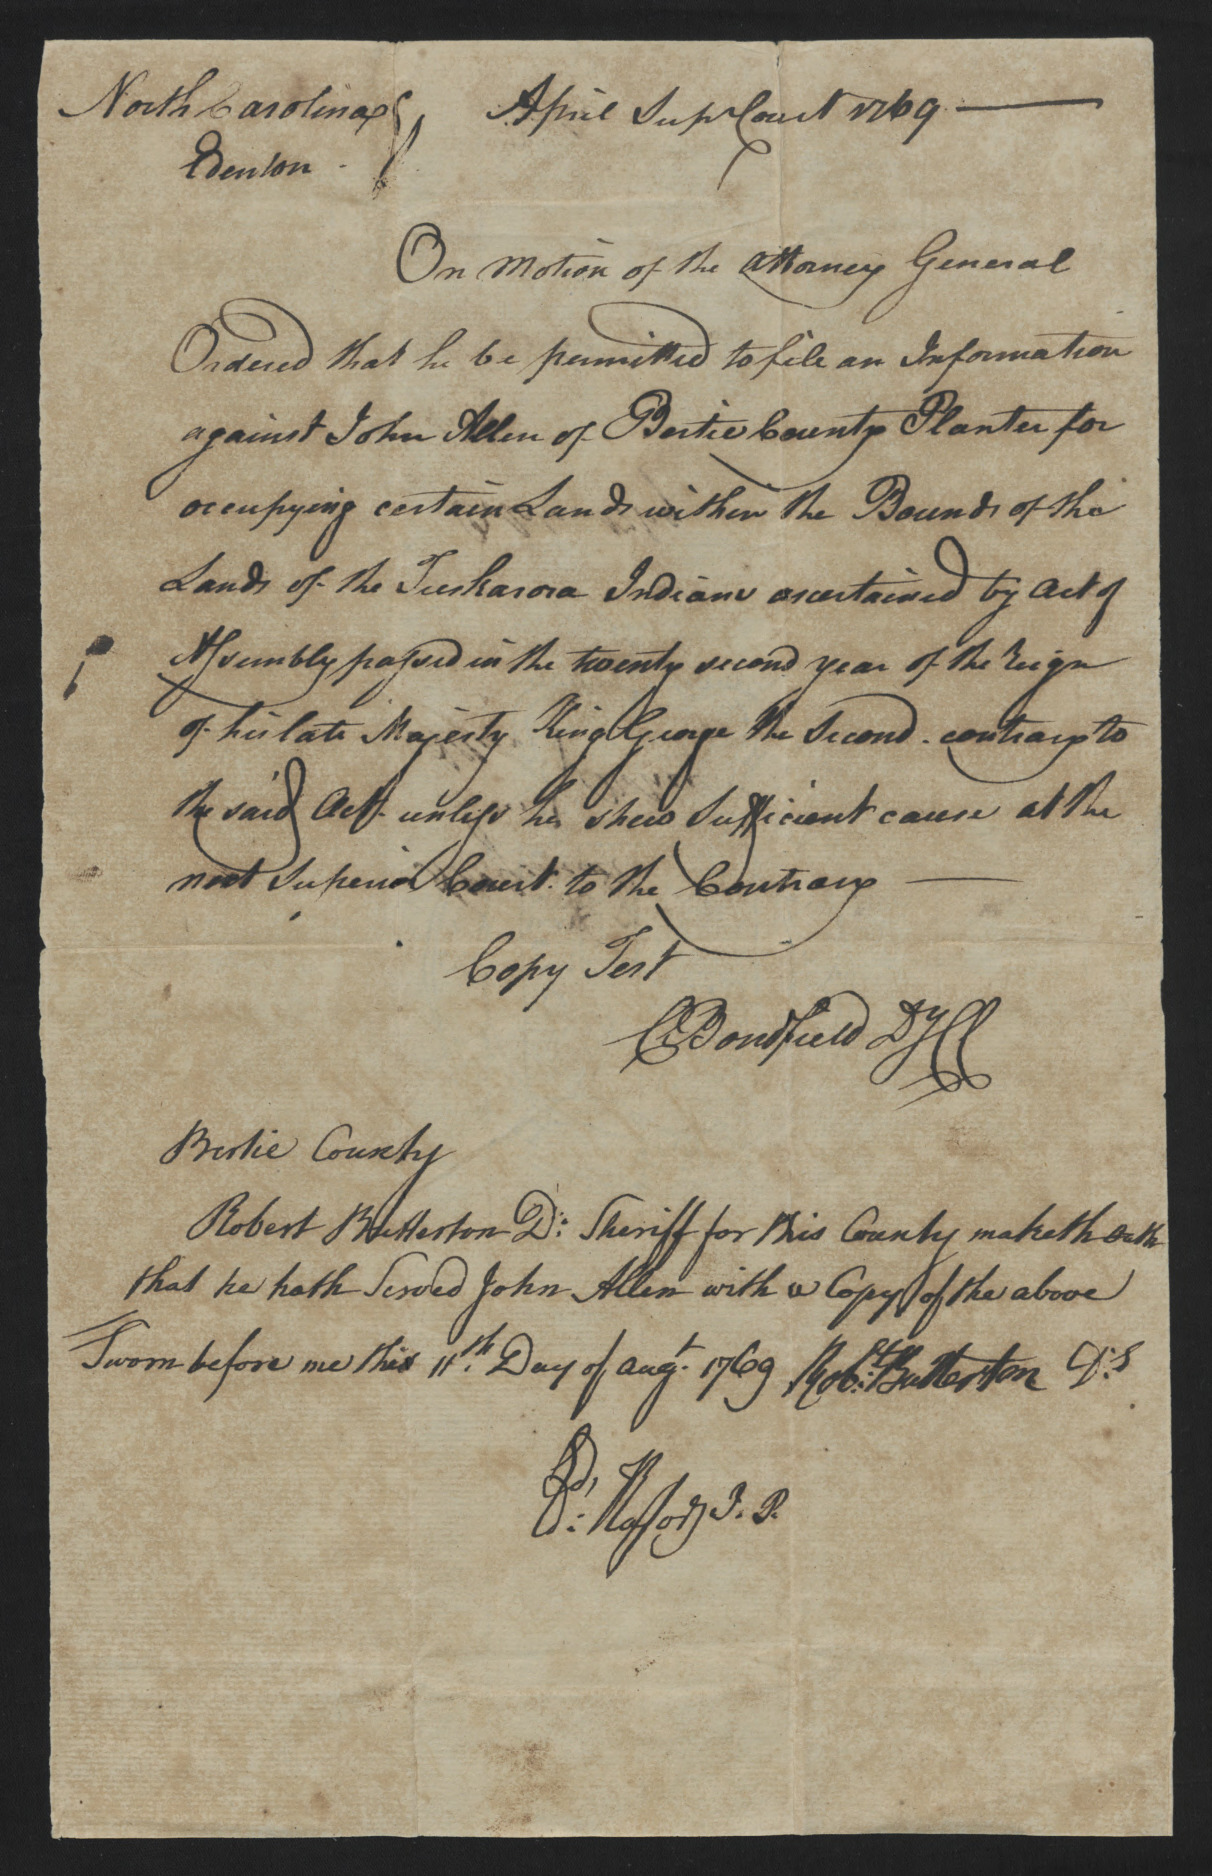 North Carolina
Edenton
April Supr Court 1769
On Motion of the Attorney General
Ordered that he be permitted to file an Information
against John Allen of Bertie County Planter for
occupying certain Lands within the Bounds of the
Lands of the Tuskarora Indians ascertained by Act of
Assembly passed in the twenty second year of the Reign
of his late Majesty King George the Second contrary to
the said Act unless he shew Sufficient cause at the
next Superior Court to the Contrary
Copy Test
C Bondfield Dy Cl
Bertie County
Robert Butterton D: Sheriff for this County maketh Oath
that he hath Served John Allen with a Copy of the above
Sworn before me this 11th Day of Augt. 1769 Robt: Butterton D:S
J. P.